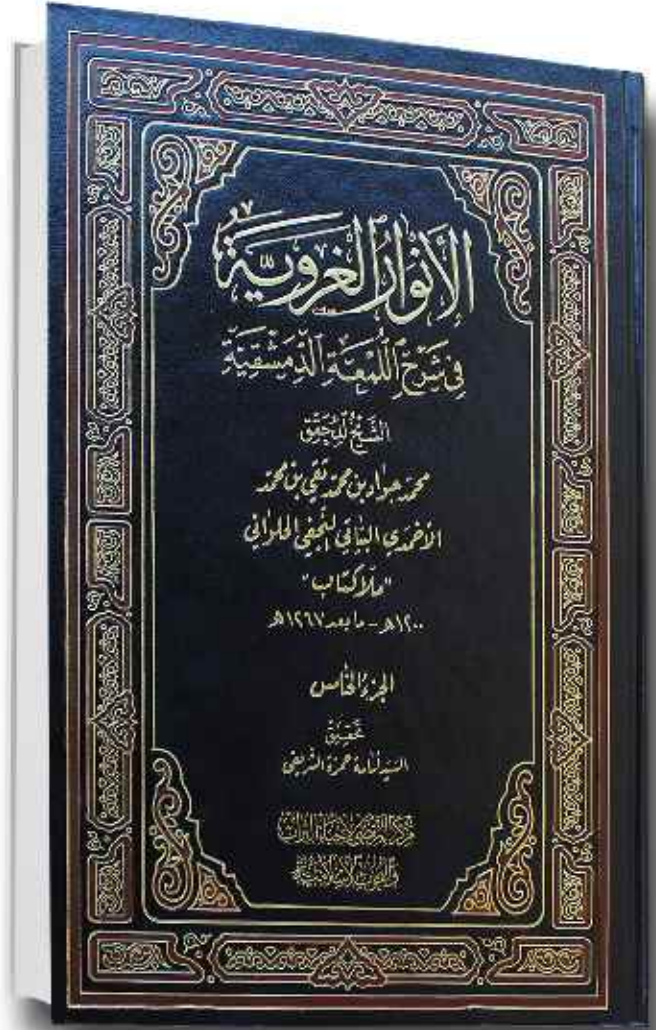 الأنوار الغروية
في شرح اللمعة الدمشقية
الشيخ المحقق
محمد جواد بن محمد تقي بن محمد
الأحمدي البياتي النجفي الحلواني
"ملا كتاب"
١٢٠٠هـ - ما بعد ١٢٦٧هـ
الجزء الخامس
تحقيق
السيد أسامة حمزة الشريفي
مركز المرتضى لإحياء التراث